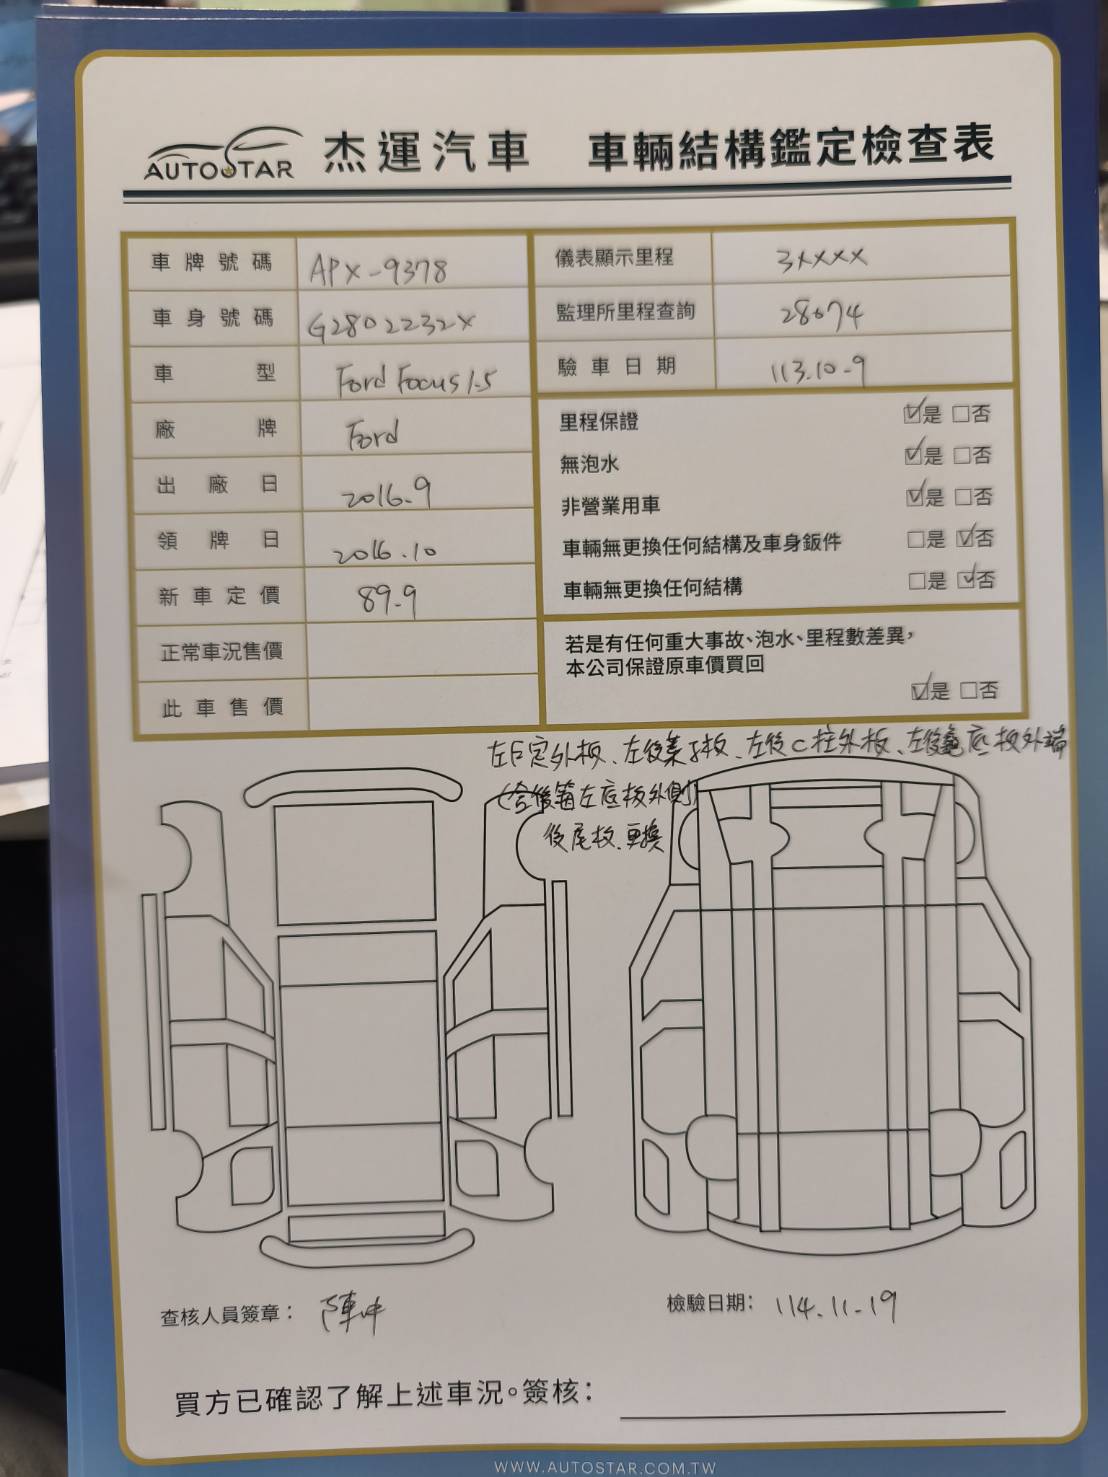 AUTOSTAR 杰運汽車 車輛結構鑑定檢查表
車牌號碼 APX-9378
車身號碼 G2802232X
車型 Ford Focus 1.5
廠牌 Ford
出廠日 2016.9
領牌日 2016.10
新車定價 89.9
正常車況售價
此車售價
儀表顯示里程 3XXXX
監理所里程查詢 28074
驗車日期 113.10-9
里程保證 ☑是 □否
無泡水 ☑是 □否
非營業用車 ☑是 □否
車輛無更換任何結構及車身鈑件 □是 ☑否
車輛無更換任何結構 □是 ☑否
若是有任何重大事故、泡水、里程數差異,
本公司保證原車價買回
☑是 □否
左戶定外板、左後業子板、左後C柱外板、左後 底板外端
(含後箱左底板外側)
後尾板.更換
查核人員簽章: 陳
檢驗日期: 114.11-19
買方已確認了解上述車況。簽核:
WWW.AUTOSTAR.COM.TW